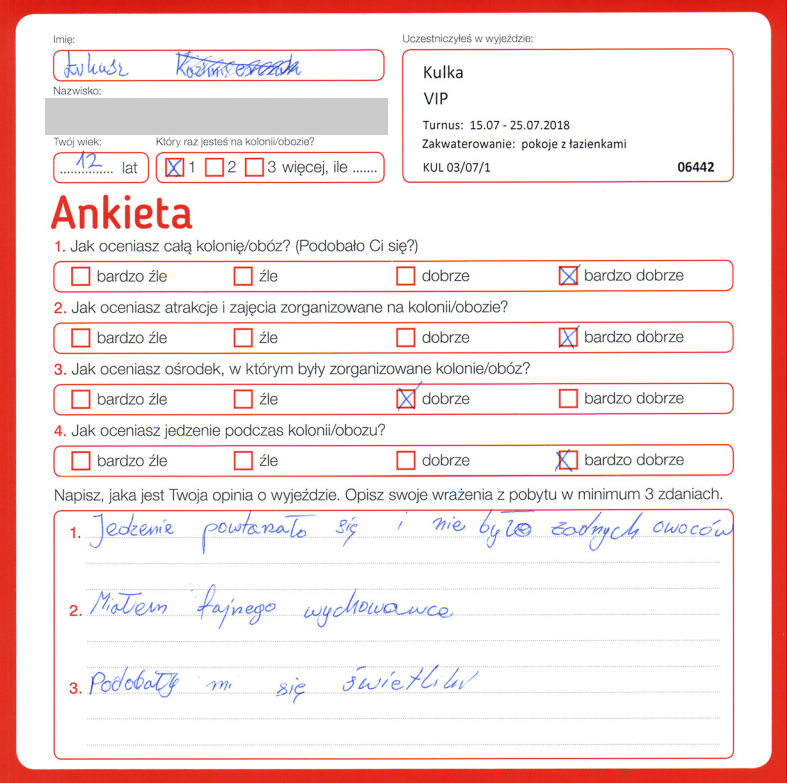 Imię:
Łukasz
Nazwisko:
Twój wiek:
12 lat
Który raz jesteś na kolonii/obozie?
1 2 3 więcej, ile .......
Uczestniczyłeś w wyjeździe:
Kulka
VIP
Turnus: 15.07 - 25.07.2018
Zakwaterowanie: pokoje z łazienkami
KUL 03/07/1 06442
Ankieta
1. Jak oceniasz całą kolonię/obóz? (Podobało Ci się?)
bardzo źle źle dobrze bardzo dobrze
2. Jak oceniasz atrakcje i zajęcia zorganizowane na kolonii/obozie?
bardzo źle źle dobrze bardzo dobrze
3. Jak oceniasz ośrodek, w którym były zorganizowane kolonie/obóz?
bardzo źle źle dobrze bardzo dobrze
4. Jak oceniasz jedzenie podczas kolonii/obozu?
bardzo źle źle dobrze bardzo dobrze
Napisz, jaka jest Twoja opinia o wyjeździe. Opisz swoje wrażenia z pobytu w minimum 3 zdaniach.
1. Jedzenie powtarzało się i nie było żadnych owoców
2. Miałem fajnego wychowawce
3. Podobały mi się świetliki